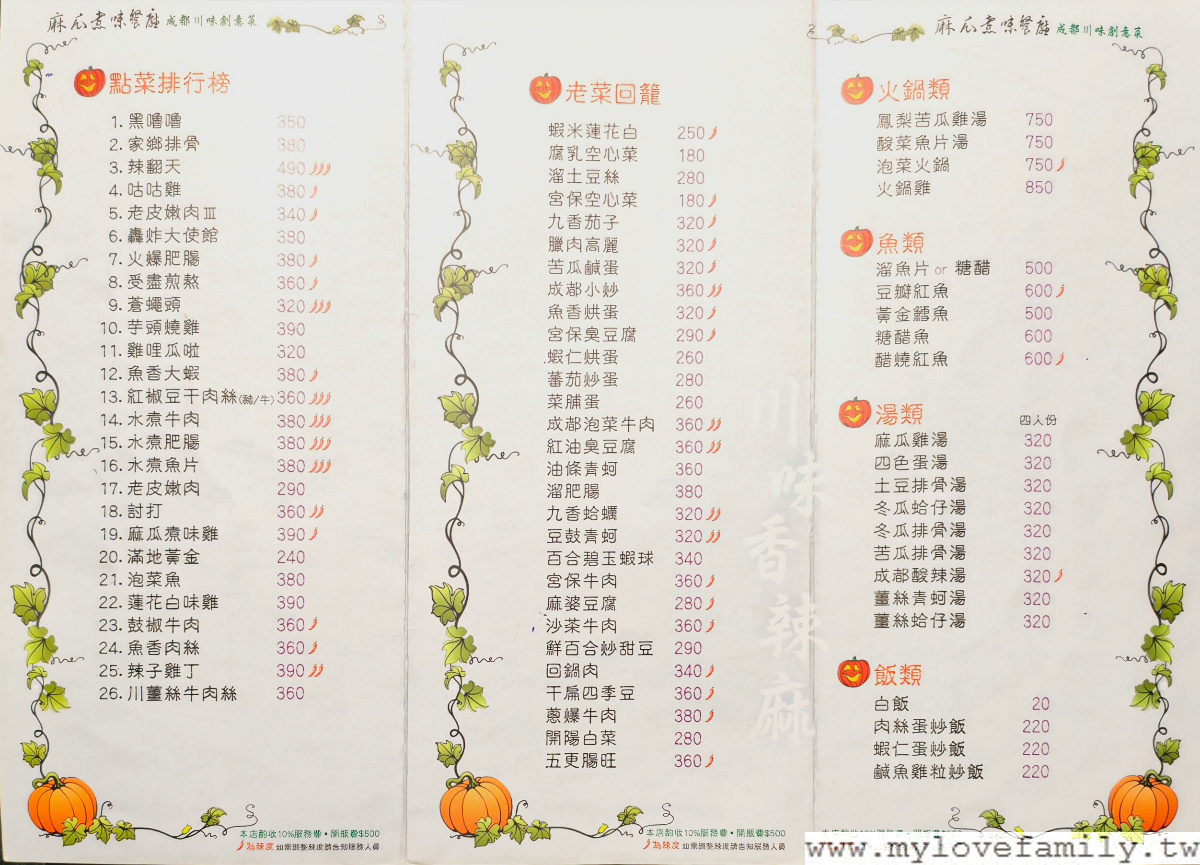 麻瓜煮味餐廳 成都川味創意菜
點菜排行榜
1. 黑嚕嚕 350
2. 家鄉排骨 380
3. 辣翻天 490
4. 咕咕雞 380
5. 老皮嫩肉Ⅲ 340
6. 轟炸大使館 380
7. 火爆肥腸 380
8. 受盡煎熬 360
9. 蒼蠅頭 320
10. 芋頭燒雞 390
11. 雞哩瓜啦 320
12. 魚香大蝦 380
13. 紅椒豆干肉絲(豬/牛) 360
14. 水煮牛肉 380
15. 水煮肥腸 380
16. 水煮魚片 380
17. 老皮嫩肉 290
18. 討打 360
19. 麻瓜煮味雞 390
20. 滿地黃金 240
21. 泡菜魚 380
22. 蓮花白味雞 390
23. 鼓椒牛肉 360
24. 魚香肉絲 360
25. 辣子雞丁 390
26. 川薑絲牛肉絲 360
本店酌收10%服務費•開瓶費$500
為辣度 如需調整辣度請告知服務人員
老菜回籠
蝦米蓮花白 250
腐乳空心菜 180
溜土豆絲 280
宮保空心菜 180
九香茄子 320
臘肉高麗 320
苦瓜鹹蛋 320
成都小炒 360
魚香烘蛋 320
宮保臭豆腐 290
蝦仁烘蛋 260
蕃茄炒蛋 280
菜脯蛋 260
成都泡菜牛肉 360
紅油臭豆腐 360
油條青蚵 360
溜肥腸 380
九香蛤蠣 320
豆鼓青蚵 320
百合碧玉蝦球 340
宮保牛肉 360
麻婆豆腐 280
沙茶牛肉 360
鮮百合炒甜豆 290
回鍋肉 340
干扁四季豆 360
蔥爆牛肉 380
開陽白菜 280
五更腸旺 360
川味香辣麻
本店酌收10%服務費•開瓶費$500
為辣度 如需調整辣度請告知服務人員
麻瓜煮味餐廳 成都川味創意菜
火鍋類
鳳梨苦瓜雞湯 750
酸菜魚片湯 750
泡菜火鍋 750
火鍋雞 850
魚類
溜魚片 or 糖醋 500
豆瓣紅魚 600
黃金鱈魚 500
糖醋魚 600
醋燒紅魚 600
湯類 四人份
麻瓜雞湯 320
四色蛋湯 320
土豆排骨湯 320
冬瓜蛤仔湯 320
冬瓜排骨湯 320
苦瓜排骨湯 320
成都酸辣湯 320
薑絲青蚵湯 320
薑絲蛤仔湯 320
飯類
白飯 20
肉絲蛋炒飯 220
蝦仁蛋炒飯 220
鹹魚雞粒炒飯 220
www.mylovefamily.tw